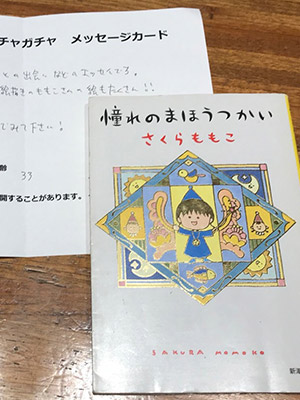 チャガチャ　メッセージカード
との出会い などのエッセイです。
絵描きのももこさんの絵もたくさん!!
でみて下さい!
齢
33
開することがあります。
憧れのまほうつかい
さくらももこ
SAKURA MOMOKO
新潮